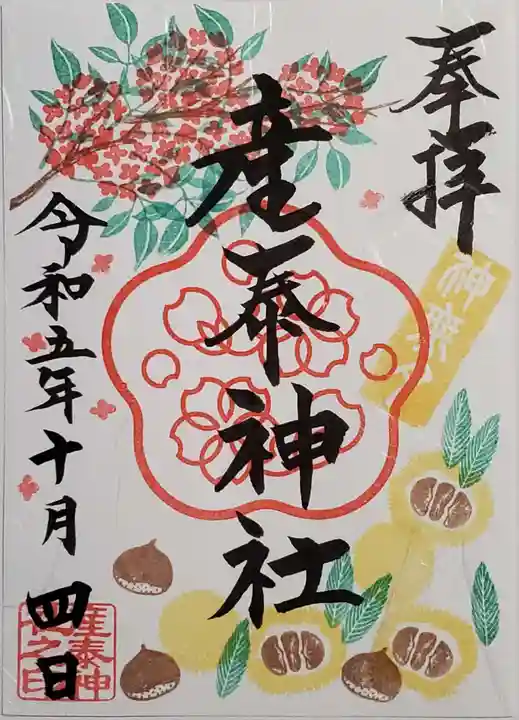 奉拝
産泰神社
令和五年十月四日
産泰神社之印